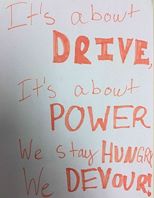 It's about
DRIVE,
It's about
POWER
We stay HUNGRY
We DEVOUR!